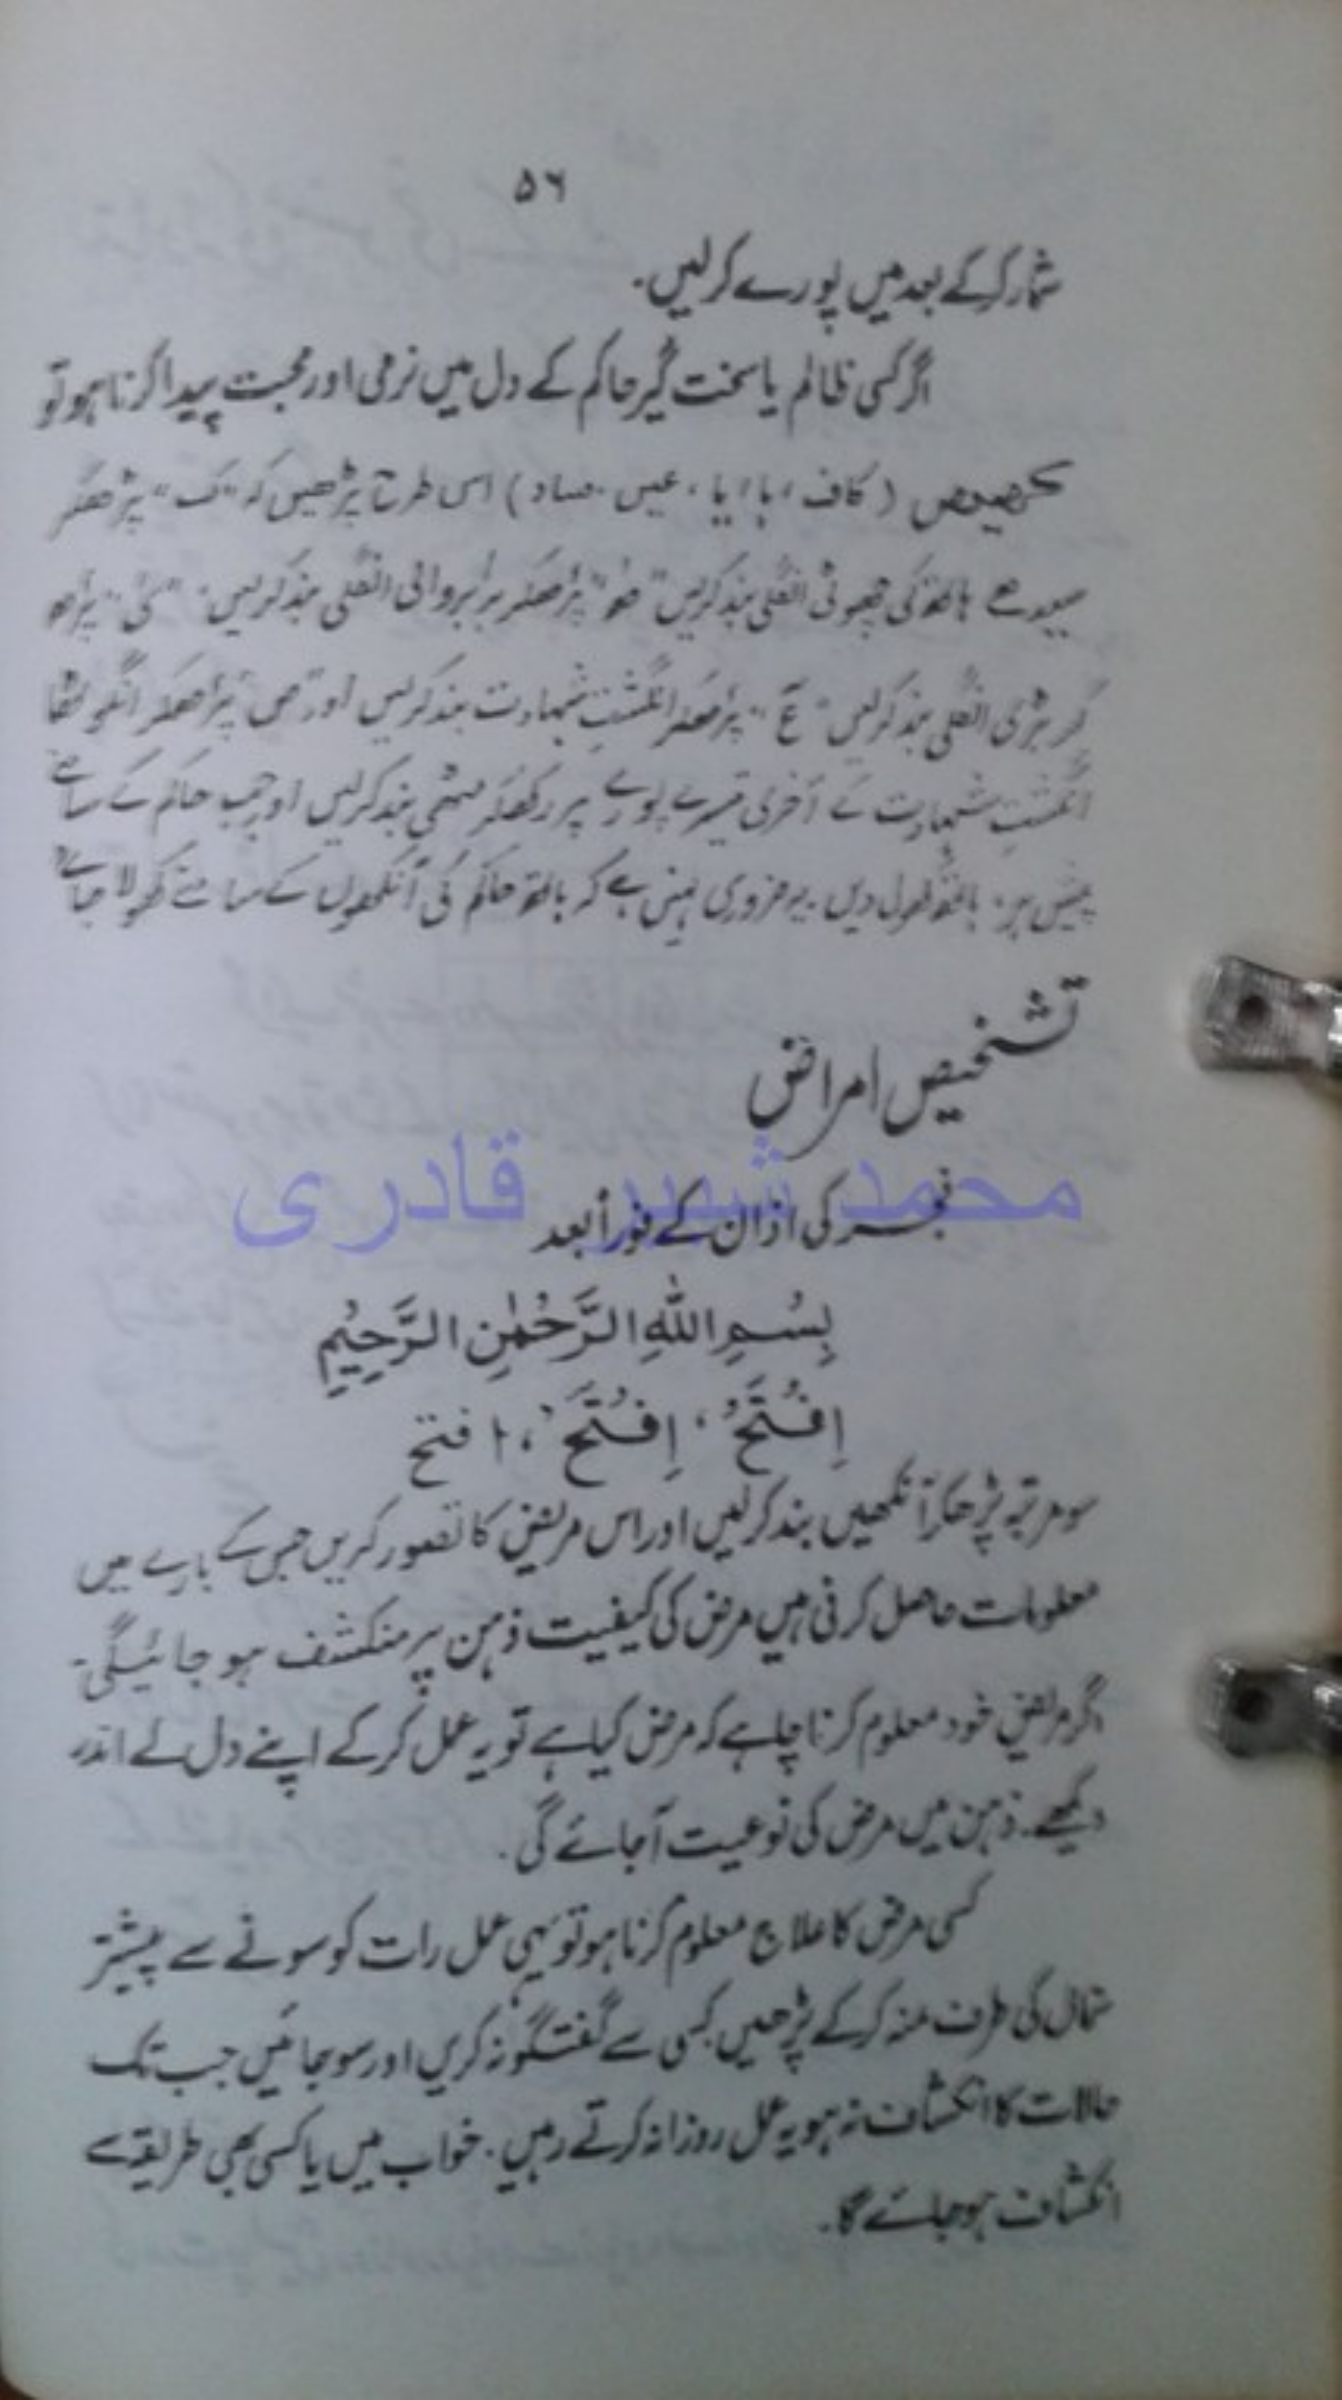 ۵۶
شمار کر کے بعد میں پورے کر لیں۔
اگر کسی ظالم یا سخت گیر حاکم کے دل میں نرمی اور محبت پیدا کرنا ہو تو
کھیعص (کاف، ہا، یا، عین، صاد) اس طرح پڑھیں کہ "ک" پڑھکر
سیدھے ہاتھ کی چھوٹی انگلی بند کر لیں "ھ" پڑھکر برابر والی انگلی بند کر لیں۔ "ی" پڑھ
کر بڑی انگلی بند کر لیں "ع" پڑھکر انگشتِ شہادت بند کر لیں اور "ص" پڑھکر انگوٹھا
انگشتِ شہادت کے آخری تیسرے پورے پر رکھکر مٹھی بند کر لیں اور جب حاکم کے سامنے
پیش ہوں ہاتھ کھول دیں۔ یہ ضروری نہیں ہے کہ ہاتھ حاکم کی آنکھوں کے سامنے کھولا جائے
تشخیص امراض
محمد شبیر قادری
فجر کی اذان کے فوراً بعد
بِسْمِ اللّٰهِ الرَّحْمٰنِ الرَّحِيْمِ
اِفْتَحْ، اِفْتَحْ، افتح
سو مرتبہ پڑھکر آنکھیں بند کر لیں اور اس مریض کا تصور کریں جس کے بارے میں
معلومات حاصل کرنی ہیں مرض کی کیفیت ذہن پر منکشف ہو جائیگی۔
اگر مریض خود معلوم کرنا چاہے کہ مرض کیا ہے تو یہ عمل کر کے اپنے دل کے اندر
دیکھے۔ ذہن میں مرض کی نوعیت آجائے گی۔
کسی مرض کا علاج معلوم کرنا ہو تو یہی عمل رات کو سونے سے پیشتر
شمال کی طرف منہ کر کے پڑھیں کسی سے گفتگو نہ کریں اور سو جائیں جب تک
حالات کا انکشاف نہ ہو یہ عمل روزانہ کرتے رہیں۔ خواب میں یا کسی بھی طریقے سے
انکشاف ہو جائے گا۔